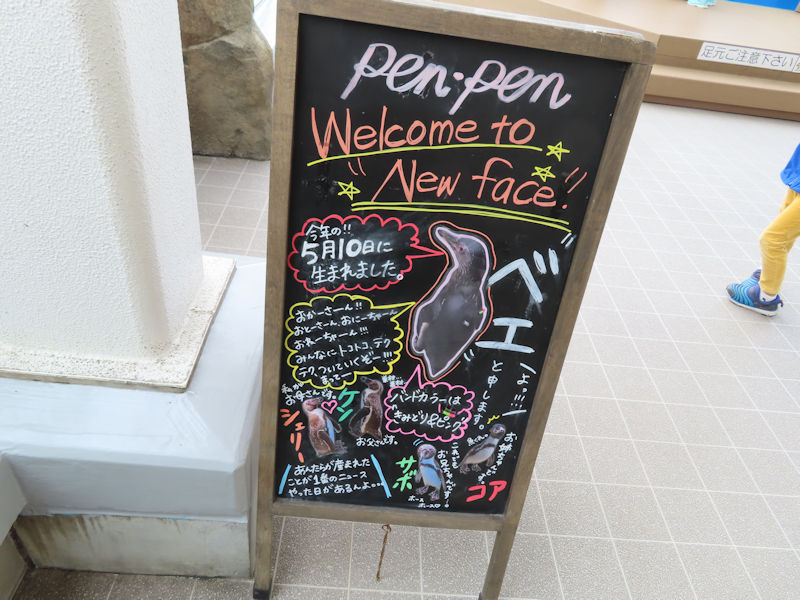 足元ご注意下さい
pen・pen
Welcome to
"New face!!
今年の!!
5月10日に
生まれました。
ベエ
よっ!!!
と申します。
おかーさーん!!
おとーさーん、おにーちゃーん
おねーちゃーん!!!
みんなにトコトコ、テク
テク、ついていくぞー!!!
まってー
バンドカラーは
きみどり&ピンク
私が
お母さんです。
シェリー
ケン
お父さんです。
あんたらが産まれた
ことが1番のニュース
やった日があるんよ...
サボ
これでも
お兄ちゃんです。
ボース
ボース
お姉ちゃん
コア